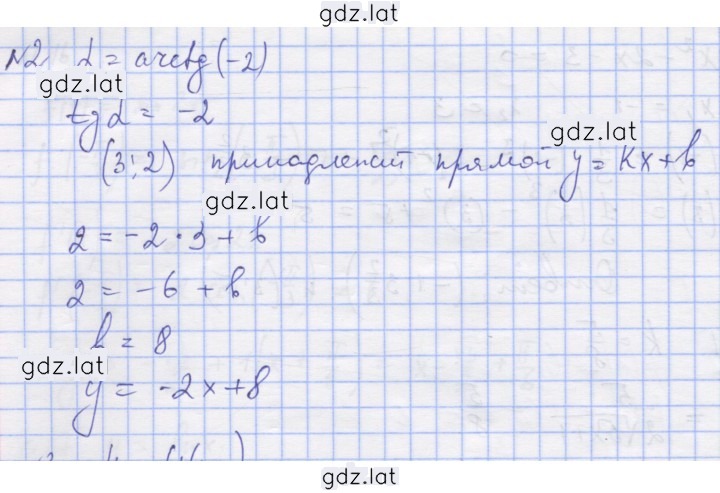 gdz.lat
N2 α = arctg(-2)
gdz.lat
tg α = -2
(3;2) принадлежит прямой y = kx+b
gdz.lat
gdz.lat
2 = -2·3+b
2 = -6+b
b = 8
gdz.lat
y = -2x+8
gdz.lat